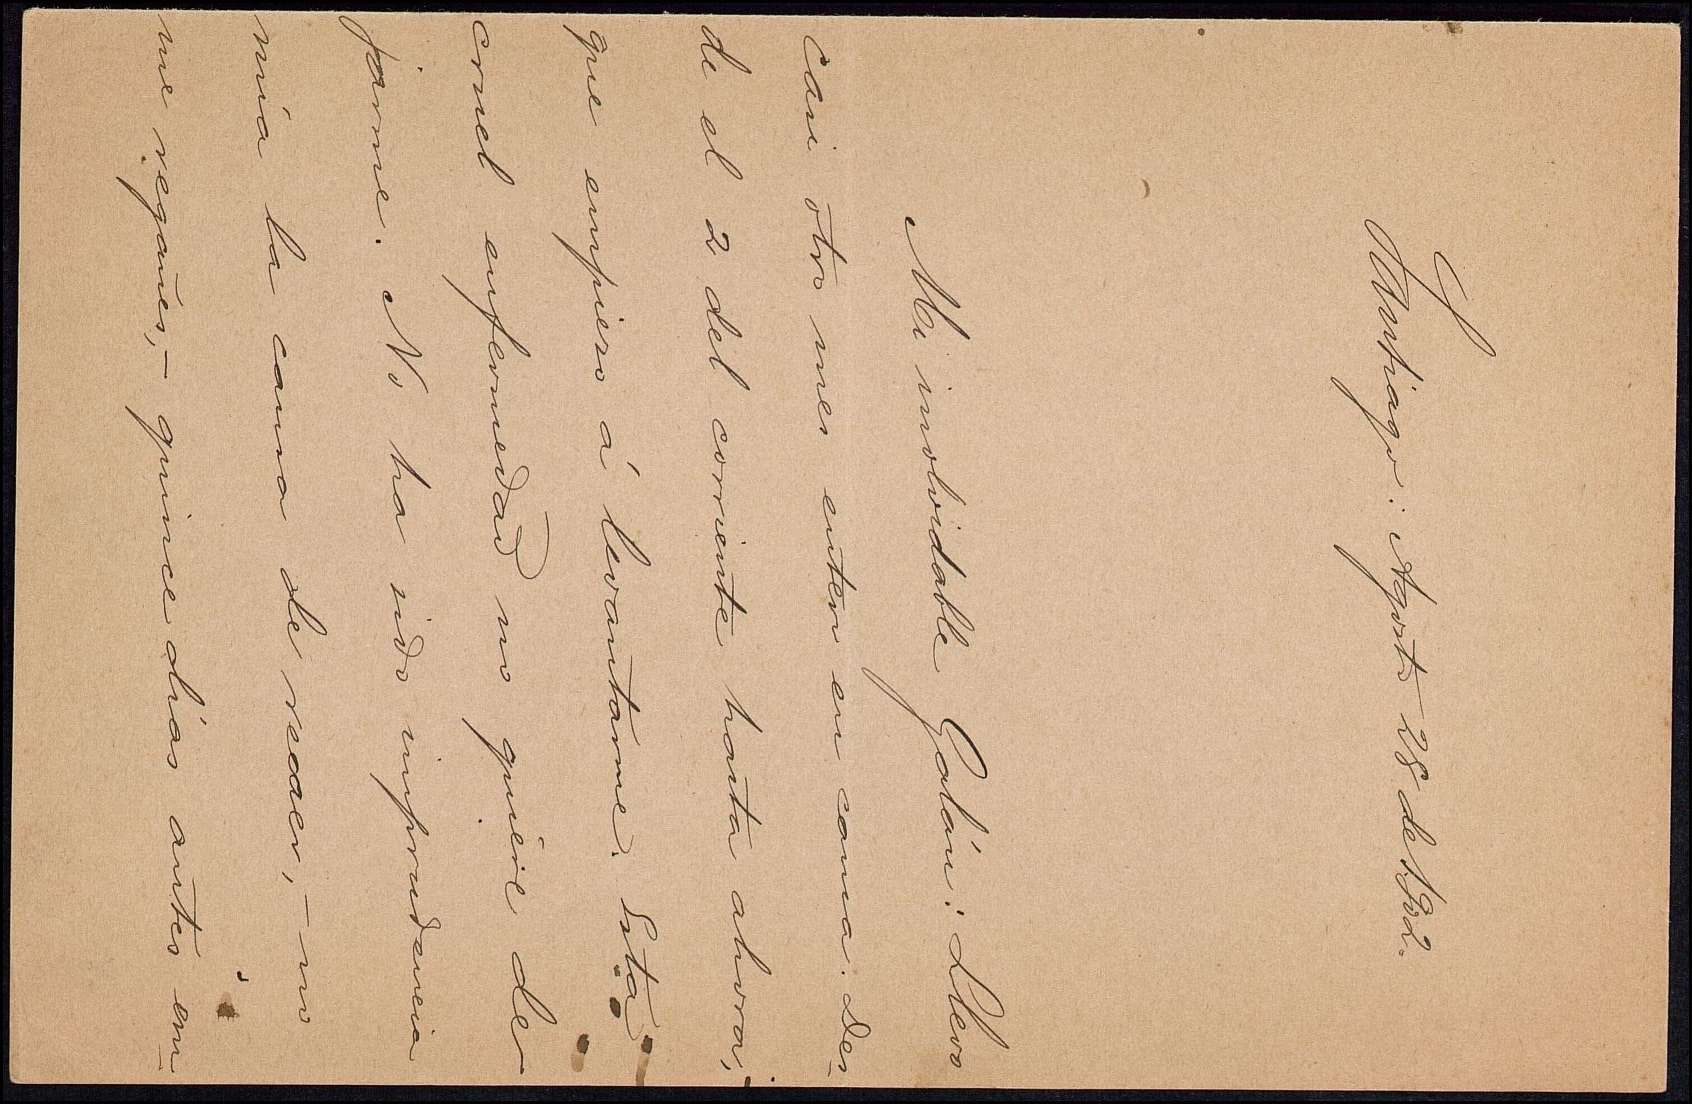 Santiago: Agosto 28 de 1,902.
Mi inolvidable Galán: Llevo
casi otro mes entero en cama. Des-
de el 2 del corriente hasta ahora,
que empiezo á levantarme. Esta
cruel enfermedad no quiere de-
jarme. No ha sido imprudencia
mía la causa de recaer,—no
me regañes,—quince días antes em-